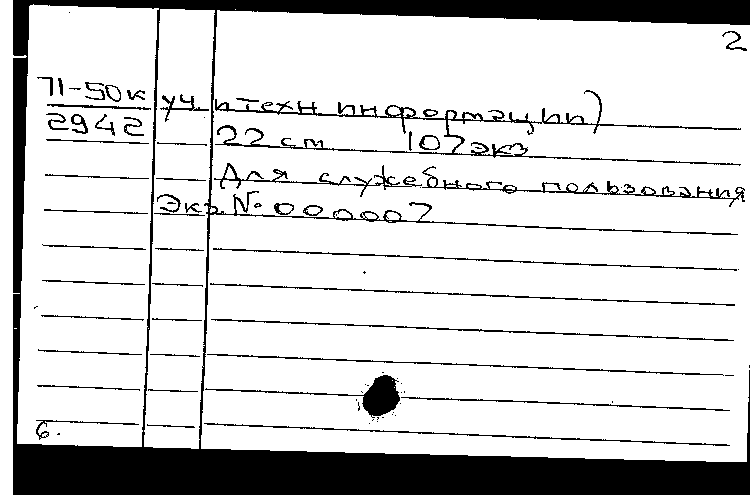 2
71-50к уч. и техн. информации)
2942 22 см 107 экз
Для служебного пользования
Экз. № 000007
6.